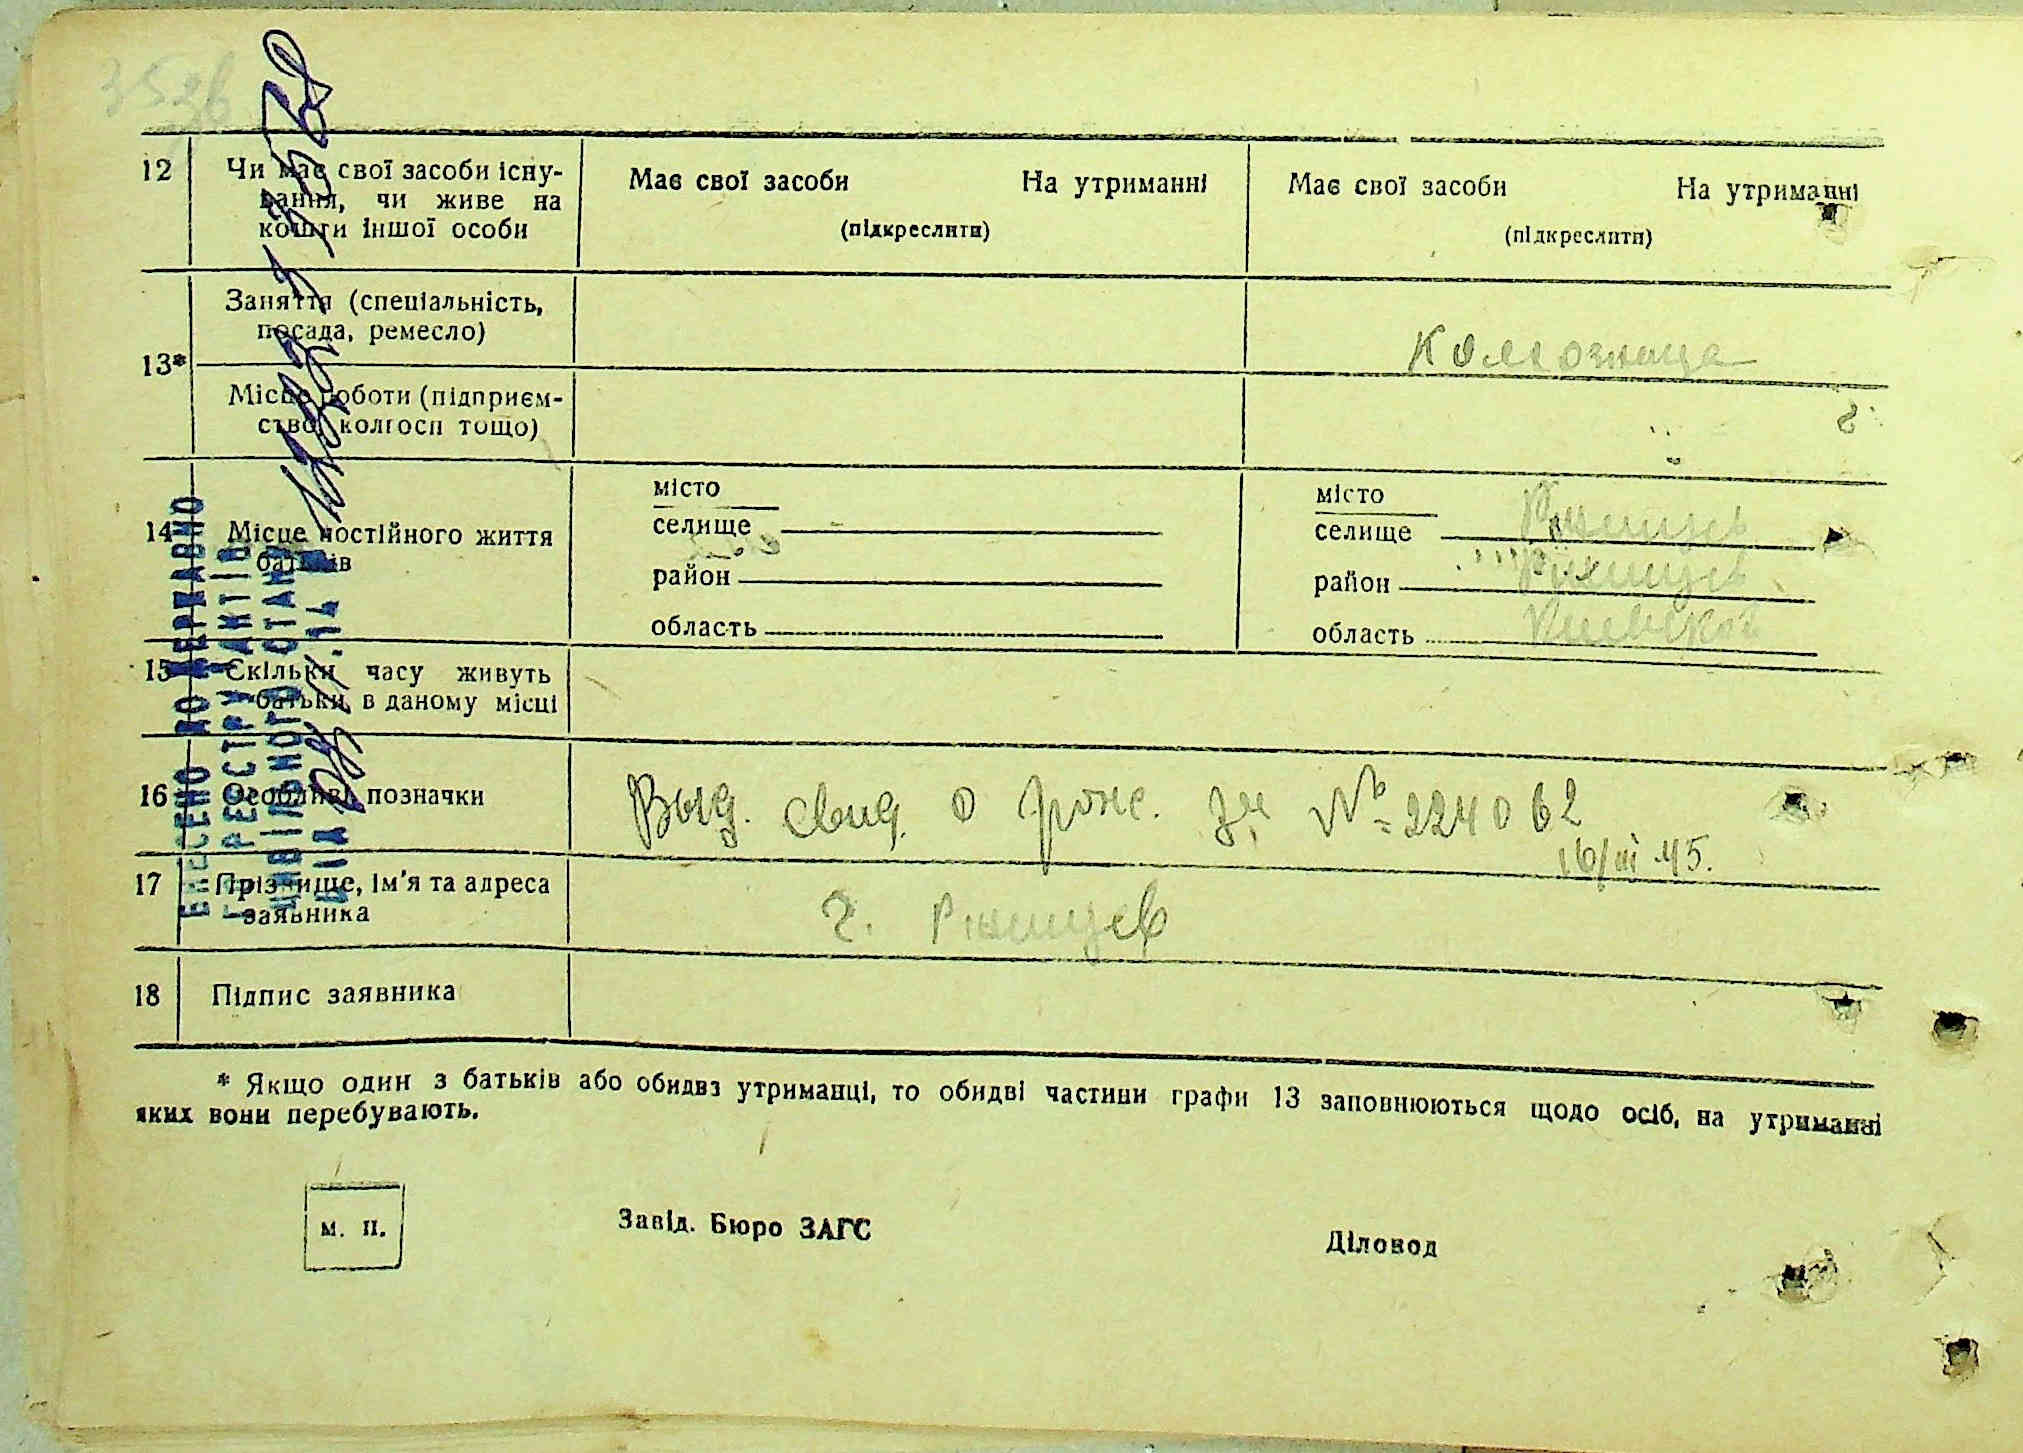 12
Чи має свої засоби існу-
вання, чи живе на
кошти іншої особи
Має свої засоби На утриманні
(підкреслити)
Має свої засоби На утриманні
(підкреслити)
13*
Заняття (спеціальність,
посада, ремесло)
Колхозница
Місце роботи (підприєм-
ство, колгосп тощо)
14
Місце постійного життя
батьків
місто
селище
район
область
місто
селище Ржищев
район Ржищев
область Киевской
15
Скільки часу живуть
батьки в даному місці
16
Особливі позначки
Выд. свид. о рож. за № 224062
16/III 45.
17
Прізвище, ім'я та адреса
заявника
г. Ржищев
18
Підпис заявника
* Якщо один з батьків або обидвз утриманці, то обидві частини графи 13 заповнюються щодо осіб, на утриманні
яких вони перебувають.
м. п.
Завід. Бюро ЗАГС
Діловод
ВНЕСЕНО ДО ДЕРЖАВНО
ГО РЕЄСТРУ АКТІВ
ЦИВІЛЬНОГО СТАНУ